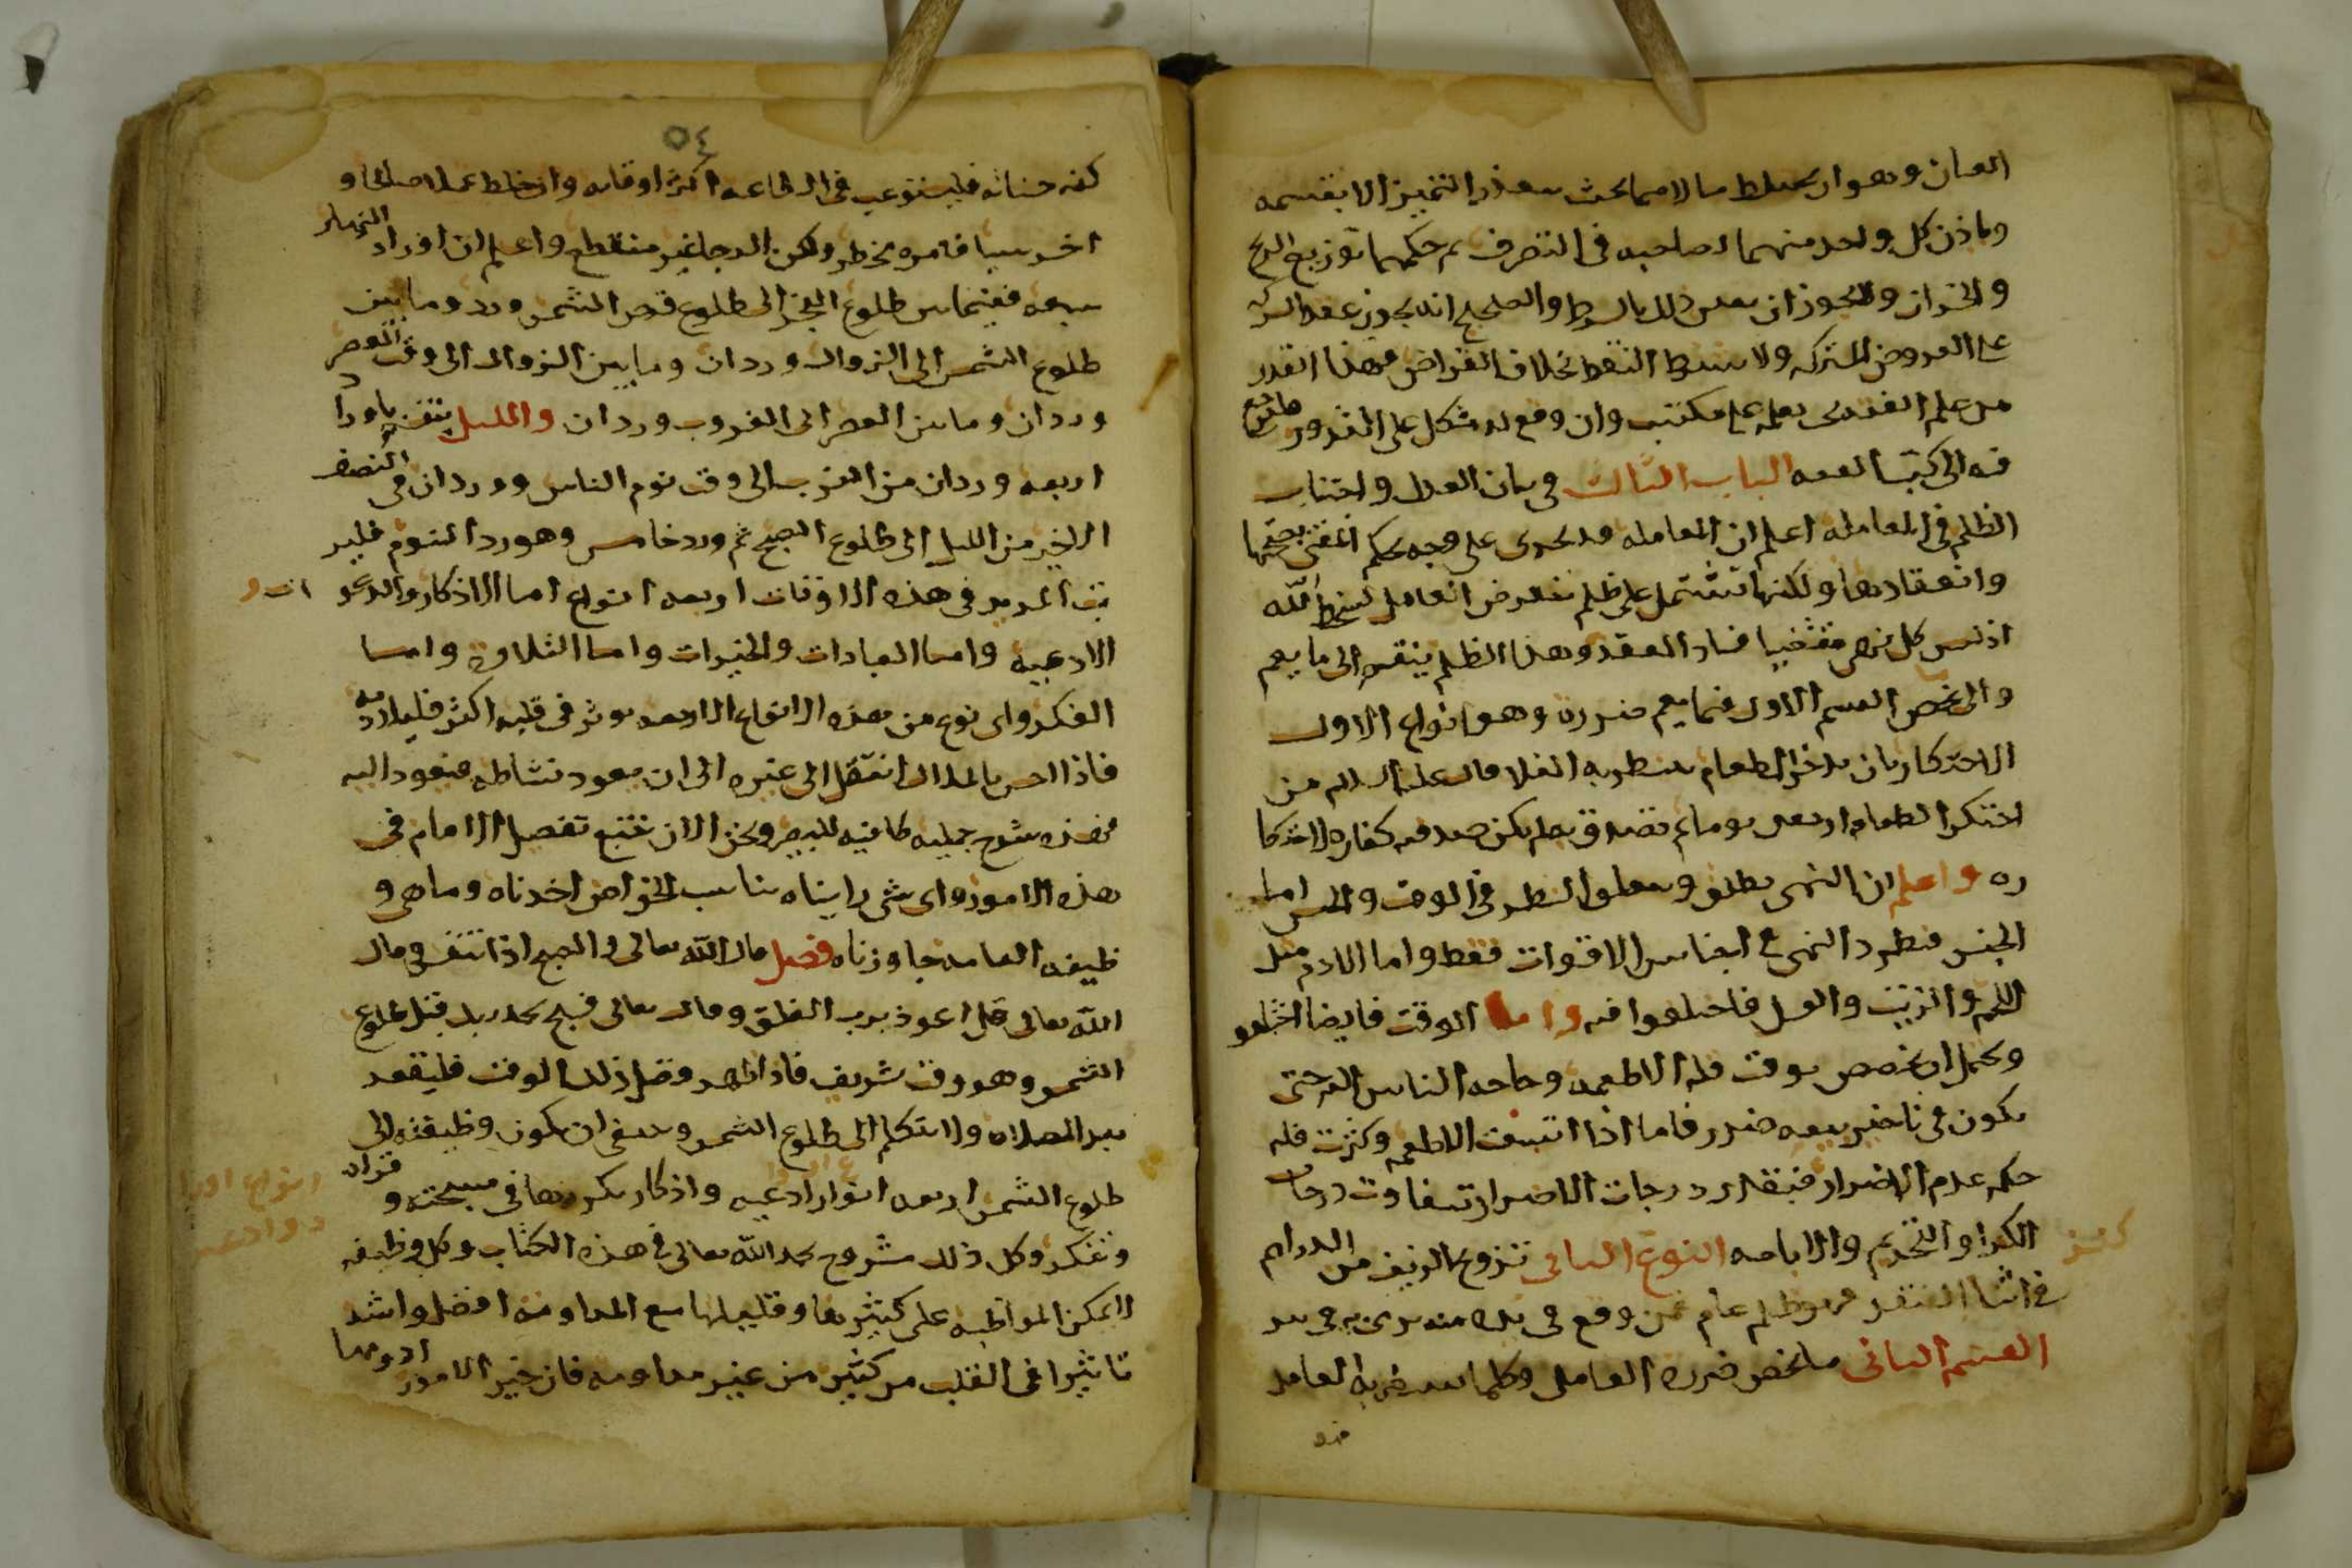 العنان وهو ان يختلط مالاهما بحيث يتعذر التميز الا بقسمه
وياذن كل واحد منهما لصاحبه فى التصرف ثم حكمهما توزيع الربح
والخسران ولا يجوز ان يغير ذلك بالشرط والصحيح انه يجوز عقد الشركه
على العروض المشتركه ولا يشترط النقد بخلاف القراض فهذا القدر
من علم الفقه يجب تعلمه على مكتسب وان وقع له مشكل على الندور
فيه الى كتب الفقه الباب الثالث فى بيان العدل واجتناب
الظلم فى المعامله اعلم ان المعامله قد تجرى على وجه يحكم المفتى بصحتها
وانعقادها ولكنها تشتمل على ظلم يتعرض العامل لسخط الله
اذ ليس كل نهى مقتضيا فساد العقد وهذا الظلم ينقسم الى ما يعم
والى يخص القسم الاول فيما يعم ضرره وهو انواع الاول
الاحتكار بان يدخر الطعام ينتظر به الغلا قال عليه السلام من
احتكر الطعام اربعين يوما ثم تصدق به لم يكن صدقته كفاره لاحتكا
ره واعلم ان النهى مطلق ويتعلق النظر فى الوقت والجنس اما
الجنس فيطرد النهى فى اجناس الاقوات فقط واما الادم مثل
اللحم والزيت والعسل فاختلفوا فيه واما الوقت فايضا اختلفو
ويحتمل ان يخصص بوقت قله الاطعمه وحاجه الناس اليه حتى
يكون فى تاخير بيعه ضرر فاما اذا اتسعت الاطعمه وكثرت فله
حكم عدم الاضرار فبقدر درجات الاضرار تتفاوت درجات
الكراهة والتحريم والاباحه النوع الثانى تزويج الزيف من الدراهم
فى اثنا النقد فهو ظلم عام فمن وقع فى يده منه يرمى به فى بير
القسم الثانى ما يخص ضرره العامل وكلما يستضر به العامل
فهو
٥٤
كفه حسناته فليستوعب فى الطاعه اكثر اوقاته وان خلط عملا صالحا و
اخر سيا فامره مخطر ولكن الرجا غير منقطع واعلم ان اوراد النهار
سبعه فيما بين طلوع الفجر الى طلوع قرص الشمس ورد وما بين
طلوع الشمس الى الزوال وردان وما بين الزوال الى وقت العصر
وردان وما بين العصر الى الغروب وردان والليل
اربعه وردان من المغرب الى وقت نوم الناس ووردان فى النصف
الاخير من الليل الى طلوع الصبح ثم ورد خامس وهو ورد النوم فلير
تب المريد فى هذه الاوقات اربعه انواع اما الاذكار والدعو
الادعيه واما العبادات والخيرات واما التلاوة واما
الفكر واى نوع من هذه الانواع الاربعه يوثر فى قلبه اكثر فليلازمه
فاذا احس بالملال انتقل الى غيره الى ان يعود نشاطه فيعود اليه
فهذه شرح جمليه كافيه للبصير ونحن الان نتبع تفصيل الامام فى
هذه الامور واى شى رايناه يناسب الخواص اخذناه وما هى و
ظيفه العامه جاوزناه فصل قال الله تعالى والصبح اذا تنفس وقال
الله تعالى قل اعوذ برب الفلق وقال تعالى فسبح بحمد ربك قبل طلوع
الشمس وهو وقت شريف فاذا ظهر وقبل ذلك الوقت فليقعد
بعد الصلاه ولا يتكلم الى طلوع الشمس وينبغى ان يكون وظيفته الى
طلوع الشمس اربعه انواع ادعيه واذكار يكررها فى مسبحته وقراه
وتفكر وكل ذلك مشروح بحمد الله تعالى فى هذه الكتاب وكل وظيفه
لا يمكن المواظبه على كثيرها وقليلها مع المداومه افضل واشد
تاثيرا فى القلب من كثير من غير مداومه فان خير الامور ادومها